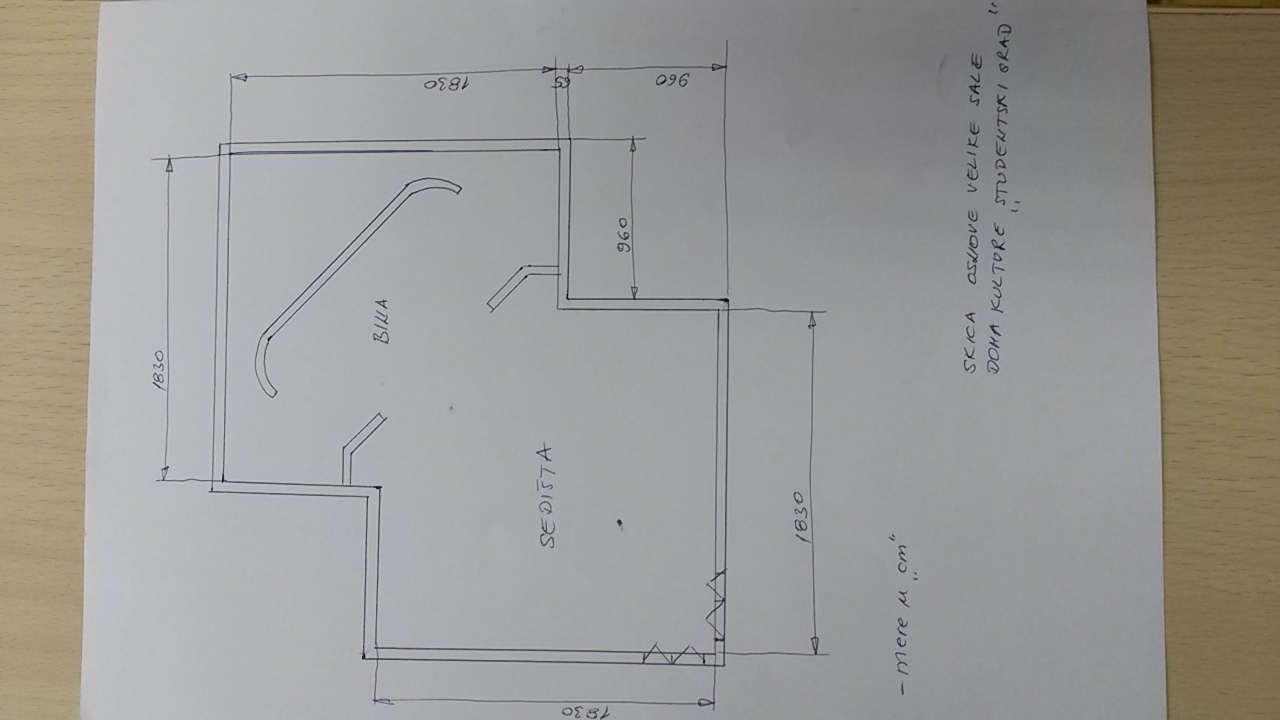 1830
BINA
1830
SEDIŠTA
1830
65
960
960
1830
- mere u „cm"
SKICA OSNOVE VELIKE SALE
DOMA KULTURE „STUDENTSKI GRAD"